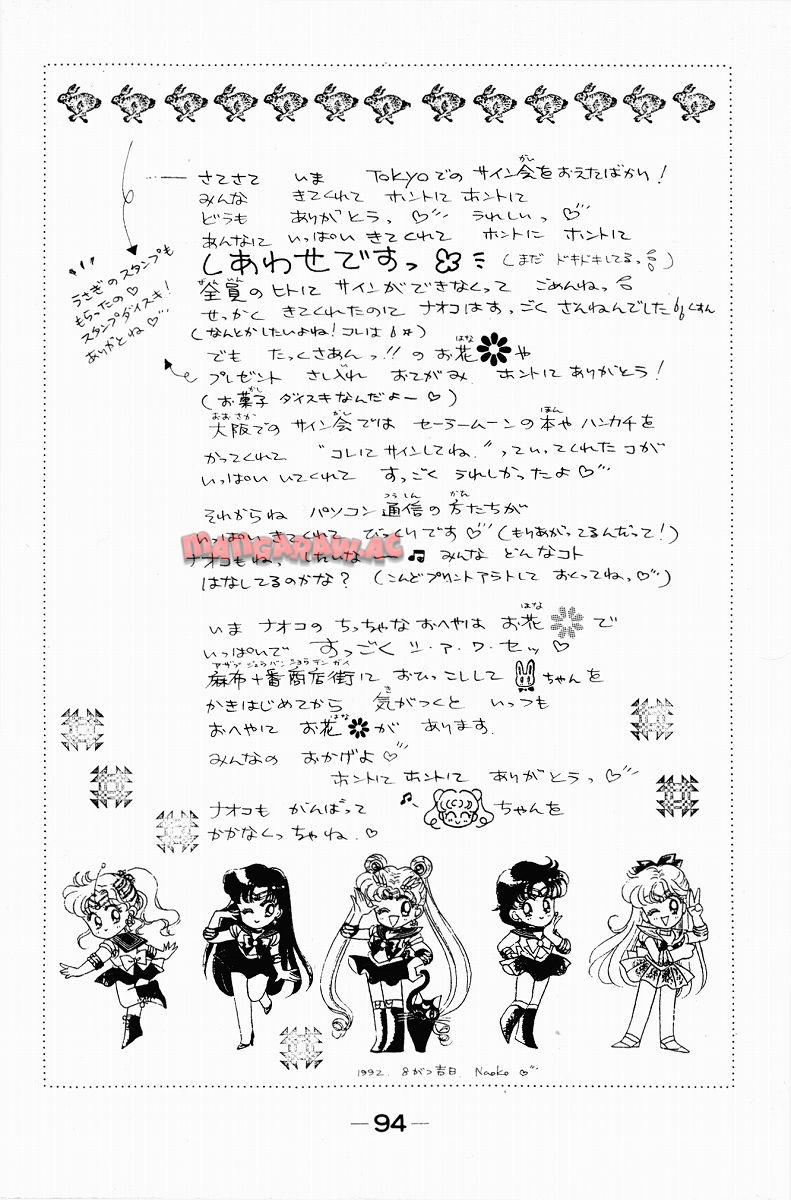 さてさて いま Tokyoでの サイン会をおえたばかり!
みんな きてくれて ホントに ホントに
どうも ありがとうっ うれしいっ
あんなに いっぱい きてくれて ホントに ホントに
しあわせですっ (まだ ドキドキしてるっ)
全員のヒトに サインができなくって ごめんねっ
せっかく きてくれたのに ナオコはすっごく ざんねんでした くすん
(なんとかしたいよね! コレは)
うさぎのスタンプも
もらったの♡
スタンプダイスキ!
ありがとね♡
でも たっくさあんっ!! の お花 や
プレゼント さし入れ おてがみ ホントに ありがとう!
(お菓子 ダイスキなんだよー♡)
大阪での サイン会では セーラームーンの本や ハンカチを
かってくれて "コレにサインしてね" っていってくれた コが
いっぱい いてくれて すっごく うれしかったよ♡
それからね パソコン通信の方たちが
いっぱい きてくれて びっくりです♡ (もりあがってるんだって!)
ナオコもねっ みんな どんなコト
はなしてるのかな? (こんどプリントアウトして おくってねっ♡)
いま ナオコの ちっちゃな おへやは お花 で
いっぱいで すっごく シ・ア・ワ・セッ♡
麻布十番商店街に おひっこしして ちゃんを
かきはじめてから 気がつくと いっつも
おへやに お花 が あります.
みんなの おかげよ♡
ホントに ホントに ありがとうっ♡
ナオコも がんばって ♪ ちゃんを
かかなくっちゃね.♡
1992. 8がつ吉日. Naoko♡
MANGARAW.AC
—94—